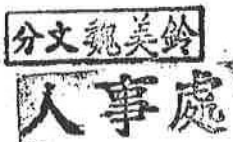 分文魏美鈴
人事處